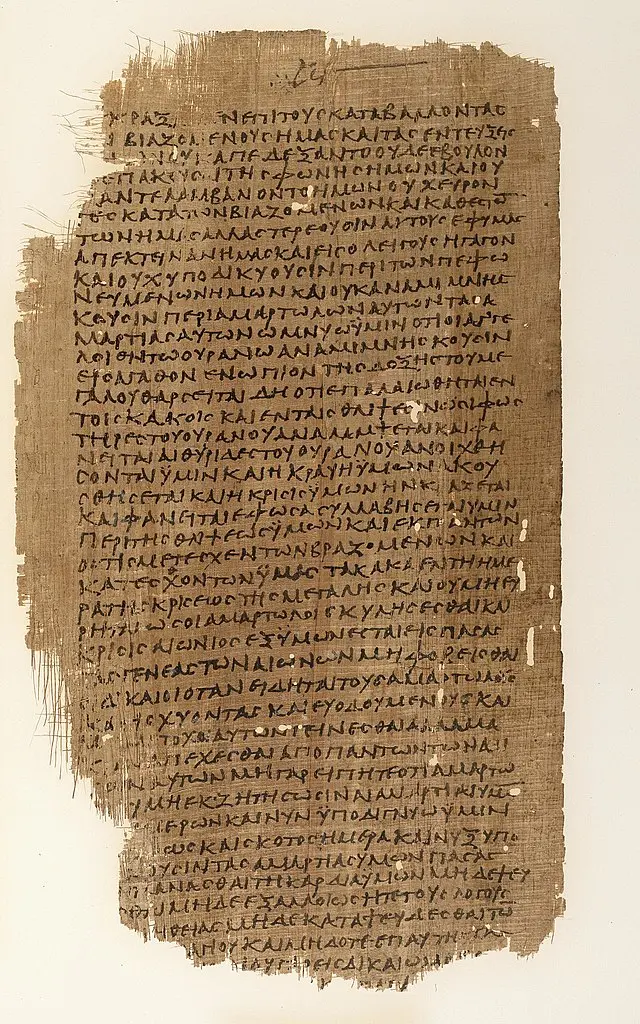 ΚΡΑΖ ΝΕΠΙΤΟΥϹΚΑΤΑΒΑΛΛΟΝΤΑϹ
ΒΙΑΖΟ ΕΝΟΥϹΗΜΑϹΚΑΙΤΑϹΕΝΤΕΥΞΕΙϹ
ΑΠΕΔΕΞΑΝΤΟΟΥΔΕΕΒΟΥΛΟΝ
ΕΠΑΚΟΥϹ ΙΤΗϹΦΩΝΗϹΗΜΩΝΚΑΙΟΥ
ΑΝΤΕΛΑΜΒΑΝΟΝΤΟΗΜΩΝΟΥΧΕΥΡΟΝ
ΤΕϹΚΑΤΑΤΩΝΒΙΑΖΟΜΕΝΩΝΚΑΙΚΑΤΕϹΘΟ
ΤΩΝΗΜΑϹΑΛΛΑϹΤΕΡΕΟΥϹΙΝΑΥΤΟΥϹΕΦΥΜΑϹ
ΑΠΕΚΤΕΙΝΑΝΗΜΑϹΚΑΙΕΙϹΟΛΕΙΓΟΥϹΗΓΑΓΟΝ
ΚΑΙΟΥΧΥΠΟΔΙΚΥΟΥϹΙΝΠΕΡΙΤΩΝΠΕΦΩ
ΝΕΥΜΕΝΩΝΗΜΩΝΚΑΙΟΥΚΑΝΑΜΙΜΝΗϹ
ΚΟΥϹΙΝΠΕΡΙΑΜΑΡΤΩΛΩΝΑΥΤΩΝΤΑϹΑ
ΜΑΡΤΙΑϹΑΥΤΩΝΟΜΝΥΩΫΜΙΝΟΤΙΟΙΑΓΓΕ
ΛΟΙΕΝΤΩΟΥΡΑΝΩΑΝΑΜΙΜΝΗϹΚΟΥϹΙΝ
ΕΙϹΑΓΑΘΟΝΕΝΩΠΙΟΝΤΗϹΔΟΞΗϹΤΟΥΜΕ
ΓΑΛΟΥΘΑΡϹΕΙΤΑΙΔΗΟΤΙΕΠΑΛΑΙΩΘΗΤΑΙΕΝ
ΤΟΙϹΚΑΚΟΙϹΚΑΙΕΝΤΑΙϹΘΛΙΨΕϹΙΝΩϹΙΦΩϹ
ΤΗΡΕϹΤΟΥΟΥΡΑΝΟΥΑΝΑΛΑΜΨΕΤΑΙΚΑΙΦΑ
ΝΕΙΤΑΙΑΙΘΥΡΙΔΕϹΤΟΥΟΥΡΑΝΟΥΑΝΟΙΧΘΗ
ϹΟΝΤΑΙΫΜΙΝΚΑΙΗΚΡΑΥΓΗΫΜΩΝΑΚΟΥ
ϹΘΗϹΕΤΑΙΚΑΙΗΚΡΙϹΙϹΫΜΩΝΗΝΚΡΑΖΕΤΑΙ
ΚΑΙΦΑΝΕΙΤΑΙΕΦΟϹΑϹΥΛΛΑΒΗϹΕΤΑΙΥΜΙΝ
ΠΕΡΙΤΗϹΘΛΙΨΕΩϹΫΜΩΝΚΑΙΕΚΠΑΝΤΩΝ
ΟϹΤΙϹΜΕΤΕϹΧΕΝΤΩΝΒΙΑΖΟΜΕΝΩΝΚΑΙ
ΚΑΤΕϹΧΟΝΤΩΝΫΜΑϹΤΑΚΑΚΑΕΝΤΗΗΜΕ
ΡΑΤΗϹΚΡΙϹΕΩϹΤΗϹΜΕΓΑΛΗϹΚΑΙΟΥΜΗΕΥ
ΡΗΤΑΙΩϹΟΙΑΜΑΡΤΩΛΟΙϹΚΥΛΗϹΕϹΘΑΙΚΑΙ
ΚΡΙϹΙϹΑΙΩΝΙΟϹΕΞΥΜΩΝΕϹΤΑΙΕΙϹΠΑϹΑϹ
ΤΑϹΓΕΝΕΑϹΤΩΝΑΙΩΝΩΝΜΗΦΟΒΕΙϹΘΑΙ
ΔΙΚΑΙΟΙΟΤΑΝΕΙΔΗΤΑΙΤΟΥϹΑΜΑΡΤΩΛΟΥϹ
ΧΥΟΝΤΑϹΚΑΙΕΥΟΔΟΥΜΕΝΟΥϹΚΑΙ
ΤΟΧΟΙΑΥΤΩΝΓΕΙΝΕϹΘΑΙΑΛΛΑΜΑ
ΑΠΕΧΕϹΘΑΙΑΠΟΠΑΝΤΩΝΤΩΝΑΔΙ
ΑΥΤΩΝΜΗΓΑΡΕΙΠΗΤΕΟΤΙΑΜΑΡΤΩ
ΜΗΕΚΖΗΤΗϹΩϹΙΝΑΙΑΜΑΡΤΙΑΙΥΜΩ
ΜΕΡΩΝΚΑΙΝΥΝΫΠΟΔΙΓΝΥΩΫΜΙΝ
ΦΩϹΚΑΙϹΚΟΤΟϹΗΜΕΡΑΚΑΙΝΥΞΥΠΟ
ΟΥϹΙΝΤΑϹΑΜΑΡΤΙΑϹΥΜΩΝΠΑϹΑϹ
ΠΛΑΝΑϹΘΑΙΤΗΚΑΡΔΙΑΥΜΩΝΜΗΔΕΨΕΥ
ΜΗΔΕΕΞΑΛΛΟΙΩϹΗΤΕΤΟΥϹΛΟΓΟΥϹ
ΘΕΙΑϹΜΗΔΕΚΑΤΑΨΕΥΔΕϹΘΑΙΤΩ
ΓΙΟΥΚΑΙΜΗΔΟΤΕΕΠΑ
ΔΙΚΑΙΩ